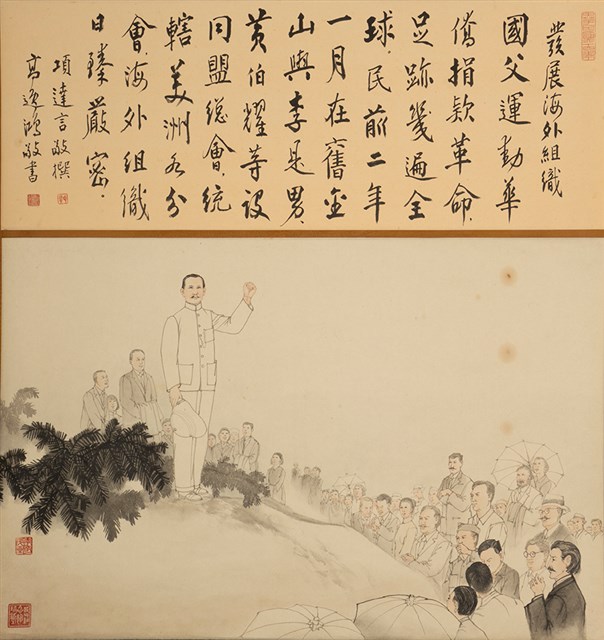 發展海外組織
國父運動華
僑捐款革命.
足跡幾遍全
球.民前二年
一月在舊金
山與李是男.
黃伯耀等設
同盟總會.統
轄美洲各分
會.海外組織
日臻嚴密.
項達言敬撰
高逸鴻敬書